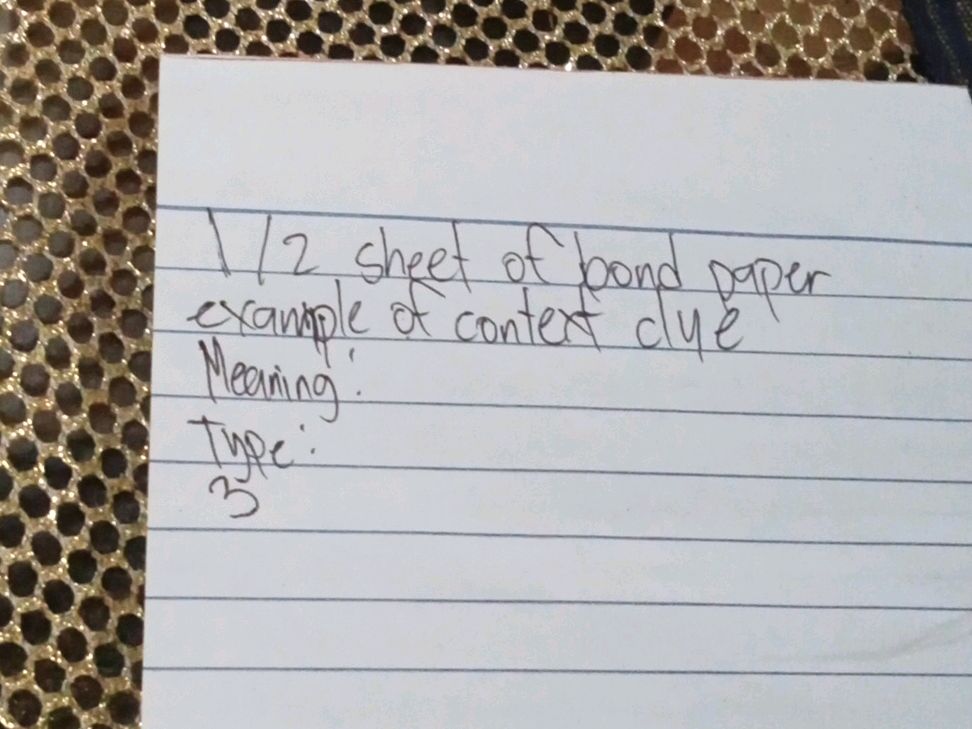 1/2 sheet of bond paper
example of context clue
Meaning:
Type:
3